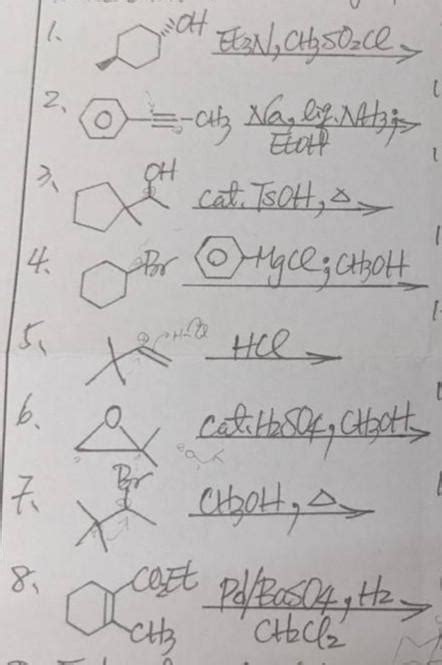 1. OH Et3N, CH3SO2Cl
2. CH3 Na, liq. NH3;
EtOH
3. OH cat. TsOH, Δ
4. Br MgCl; CH3OH
5. H-Cl HCl
6. O cat. H2SO4, CH3OH
7. Br CH3OH, Δ
8. CO2Et Pd/BaSO4, H2
CH3 CH2Cl2